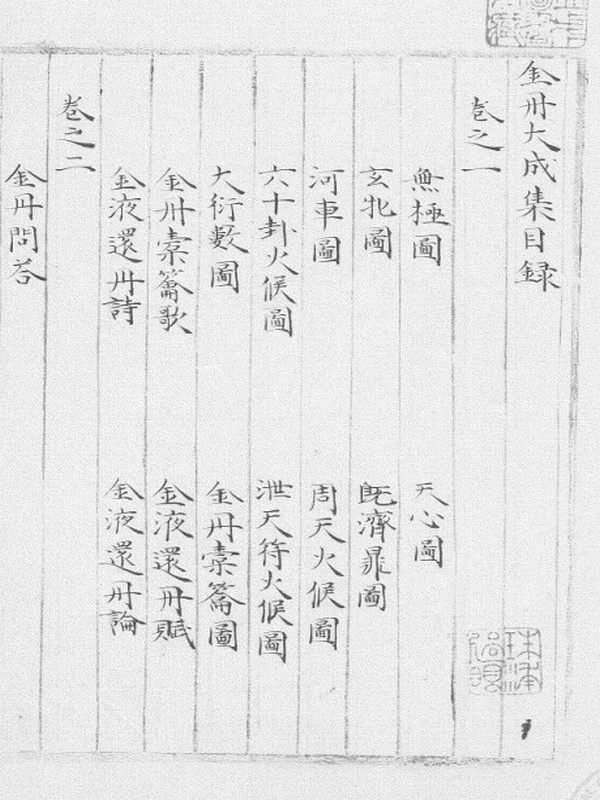 金丹大成集目録
卷之一
無極圖
天心圖
玄牝圖
既濟鼎圖
河車圖
周天火候圖
六十卦火候圖
泄天符火候圖
大衍數圖
金丹橐籥圖
金丹橐籥歌
金液還丹賦
金液還丹詩
金液還丹論
卷之二
金丹問荅